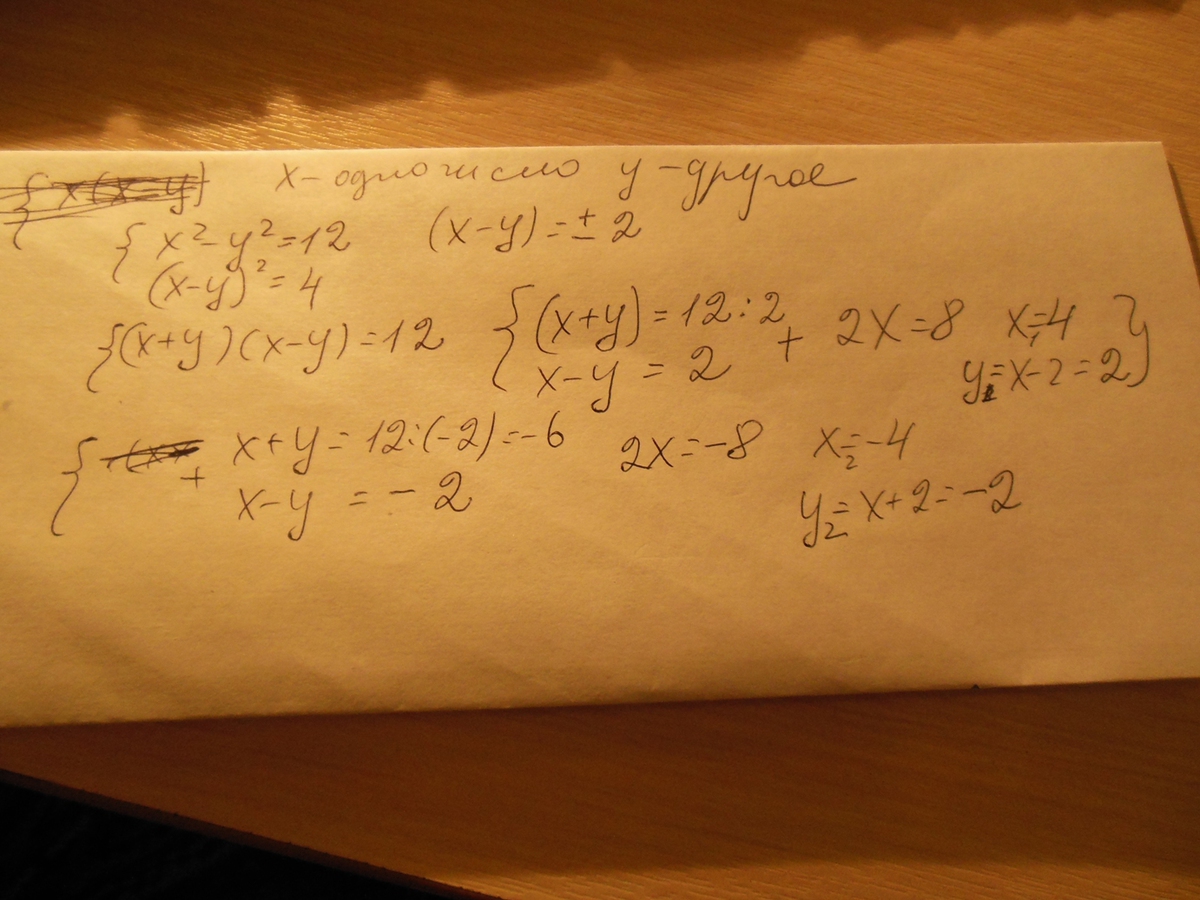 x - одно число y - другое
{ x² - y² = 12 (x-y) = ± 2
(x-y)² = 4
{(x+y)(x-y) = 12 { (x+y) = 12 : 2 + 2x = 8 x₁ = 4 }
x - y = 2 y₁ = x - 2 = 2
{ + x + y = 12 : (-2) = -6 2x = -8 x₂ = -4
x - y = - 2 y₂ = x + 2 = -2